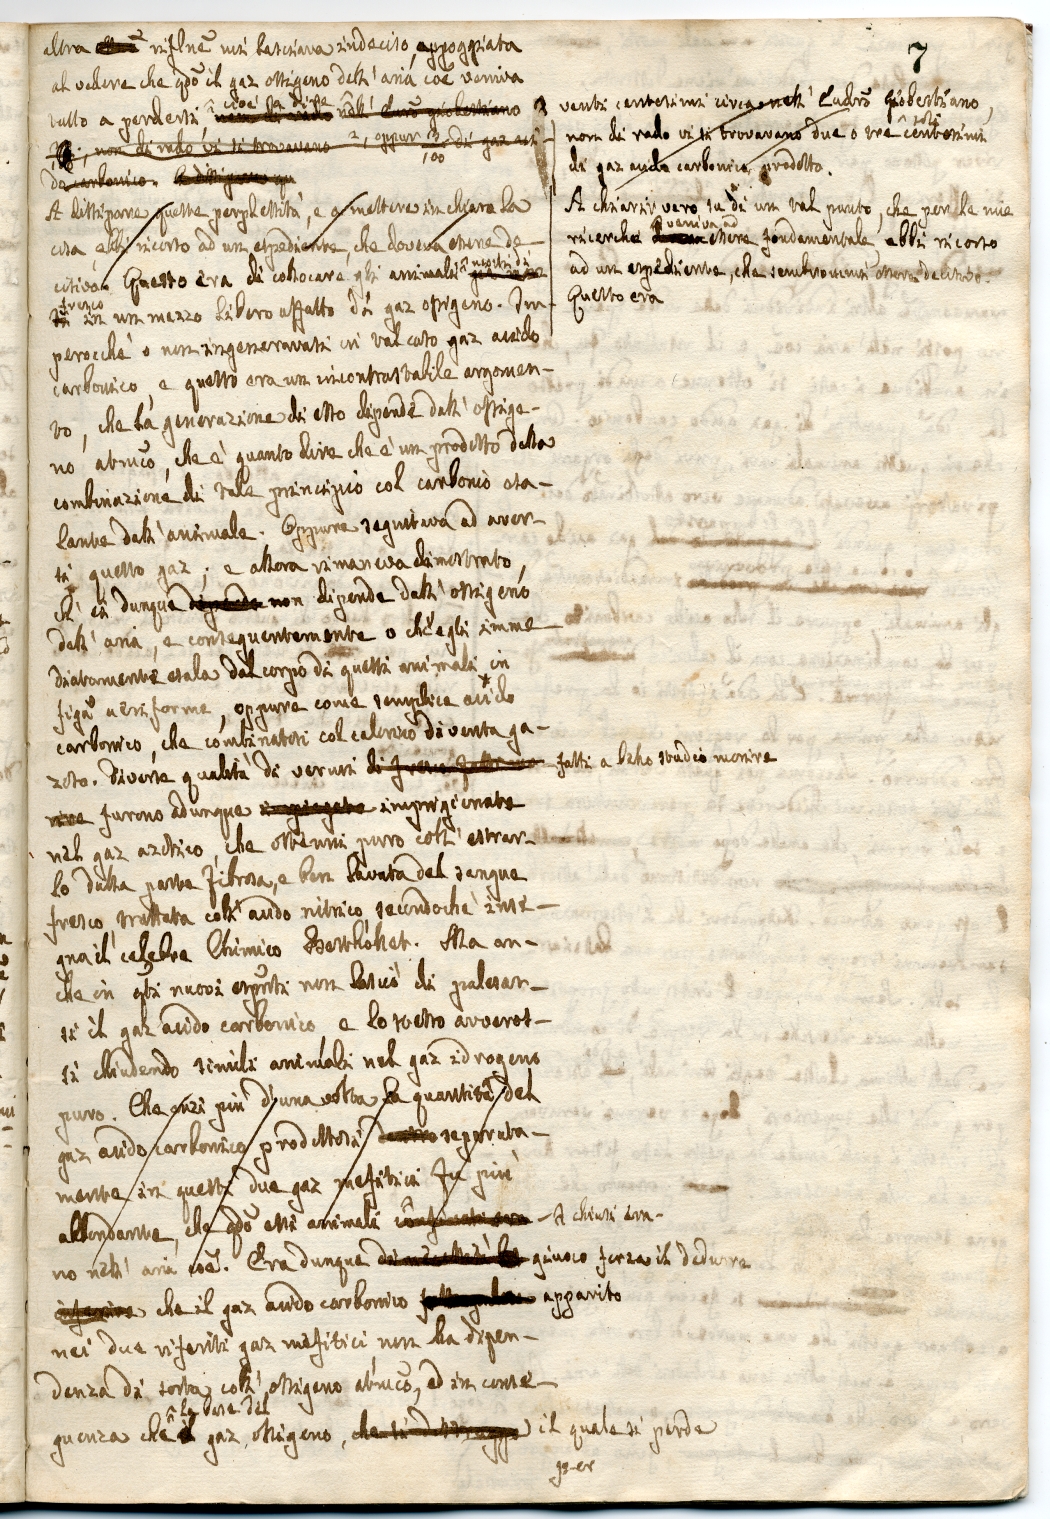 7
altra riflne mi lasciava indeciso, appoggiata
al vedere che qdo il gaz ossigeno dell' aria coe veniva
tutto a perdersi, cioè la dire nell' Eudro giobertiano
non di rado vi si trovavano 2, oppur 3/100 di gaz aci-
do carbonico.
A dissipare queste perplessità, e a mettere in chiaro la
cosa ebbi ricorso ad un espediente, che doveva essere de-
citivo. Questo era di collocare gli animali nostri di
fresco in un mezzo libero affatto di gaz ossigeno. Im-
perocchè o non ingeneravasi in tal caso gaz acido
carbonico, e questo era un incontrastabile argomen-
to, che la generazione di esso dipende dall' ossige-
no atmco, che è quanto dire che è un prodotto della
combinazione di tale principio col carbonio esa-
lante dall' animale. Oppure seguitava ad aver-
si questo gaz; e allora rimaneva dimostrato,
ch' ei dunque dipende non dipende dall' ossigeno
dell' aria, e conseguentemente o ch' egli imme-
diatamente esala dal corpo di questi animali in
figa aeriforme, oppure come semplice acido
carbonico, che combinatosi col calorico diventa ga-
zoso. Diverse qualità di vermi fatti a bello studio morire
furono adunque impiegate imprigionate
nel gaz azotico, che ottenni puro coll' estrar-
lo dalla parte fibrosa, e ben lavata del sangue
fresco, trattata coll' acido nitrico, secondochè inse-
gna il celebre Chimico Berthollet. Ma an-
che in qti nuovi espmti non lasciò di palesar-
si il gaz acido carbonico, e lo stesso avveros-
si chiudendo simili animali nel gaz idrogeno
puro. Che anzi più d'una volta la quantità del
gaz acido carbonico prodottosi separata-
mente in questi due gaz mefitici fu più
abbondante, che qdo essi animali si chiusi era-
no nell' aria coe. Era dunque giuoco forza il dedurre
inferire che il gaz acido carbonico apparito
nei due riferiti gaz mefitici non ha dipen-
denza di sorta coll' ossigeno atmco, ed in conse-
guenza che la base del gaz ossigeno, che si distrugge il quale si perde
per
venti centesimi circa nell' Eudro giobertiano,
non di rado vi si trovavano due o tre soli centesimi
di gaz acido carbonico prodotto.
A chiarir vero su di un tal punto, che per le mie
ricerche veniva ad essere fondamentale ebbi ricorso
ad un espediente, che sembrommi essere decisivo.
Questo era